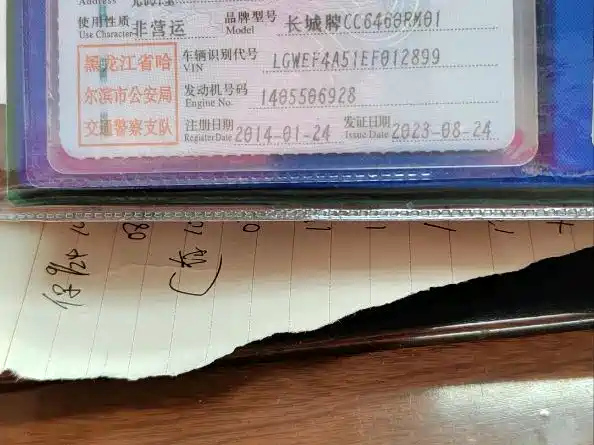 Address
使用性质 非营运 品牌型号 长城牌CC6460RM01
Use Character Model
黑龙江省哈 车辆识别代号 LGWEF4A51EF012899
VIN
尔滨市公安局 发动机号码 1405506928
Engine No.
交通警察支队 注册日期 2014-01-24 发证日期 2023-08-24
Register Date Issue Date
80